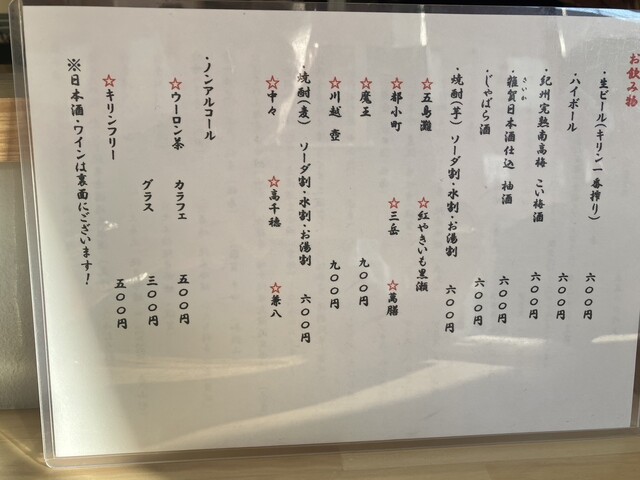 お飲み物
・生ビール(キリン一番搾り) 六〇〇円
・ハイボール 六〇〇円
・紀州完熟南高梅 こい梅酒 六〇〇円
さいか
・雑賀日本酒仕込 柚酒 六〇〇円
・じゃばら酒 六〇〇円
・焼酎(芋) ソーダ割・水割・お湯割 六〇〇円
☆五島灘 ☆紅やきいも黒瀬
☆都小町 ☆三岳 ☆萬膳
☆魔王 九〇〇円
☆川越 壺 九〇〇円
・焼酎(麦) ソーダ割・水割・お湯割 六〇〇円
☆中々 ☆高千穂 ☆兼八
・ノンアルコール
☆ウーロン茶 カラフェ 五〇〇円
グラス 三〇〇円
☆キリンフリー 五〇〇円
※日本酒・ワインは裏面にございます!